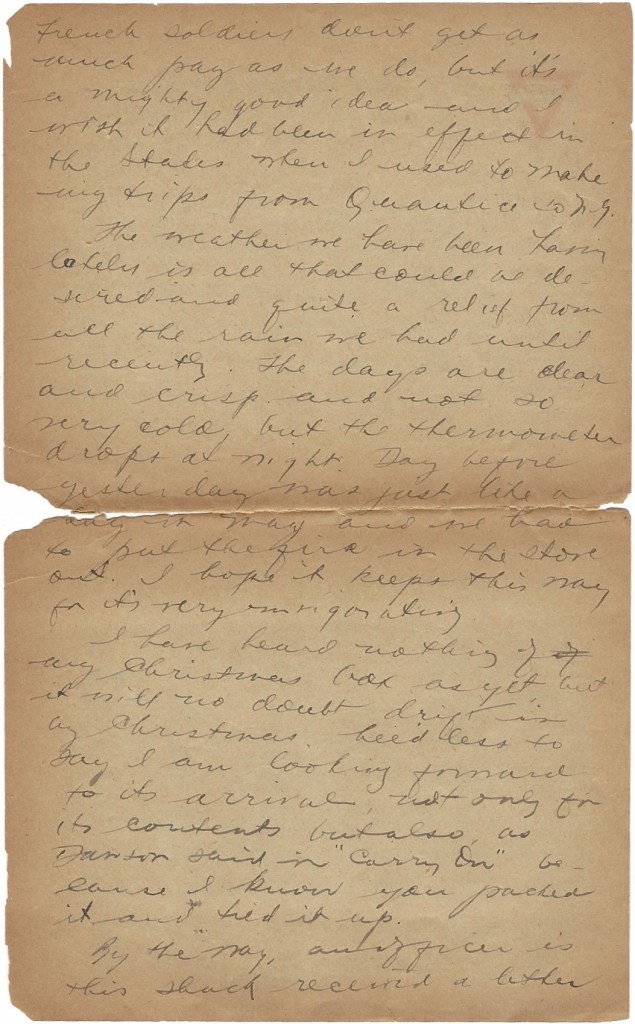 French soldiers don't get as
much pay as we do, but it's
a mighty good idea and I
wish it had been in effect in
the States when I used to make
my trips from Quantico to N.Y.
The weather we have been having
lately is all that could be de-
sired and quite a relief from
all the rain we had until
recently. The days are clear
and crisp and not so
very cold, but the thermometer
drops at night. Day before
yesterday was just like a
day in May and we had
to put the fire in the stove
out. I hope it keeps this way
for it's very invigorating.
I have heard nothing of
my Christmas box as yet but
it will no doubt drift in
by Christmas. Needless to
say I am looking forward
to its arrival, not only for
its contents but also, as
Dawson said in "Carry On" be-
cause I know you packed
it and tied it up.
By the way, an officer in
this shack received a letter